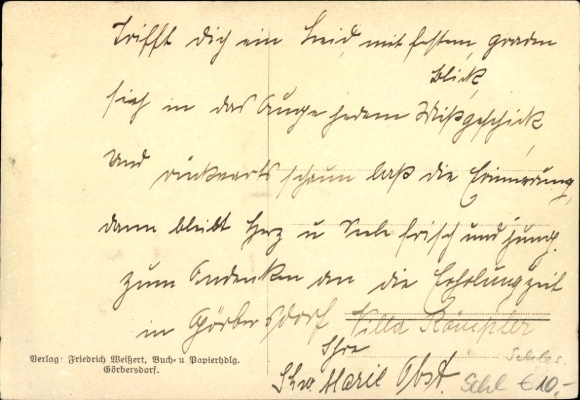 Trifft dich ein Leid, mit festem, graden
Blick,
sieh in das Auge jedem Mißgeschick,
und rückwarts schaun laß die Erinnerung,
dann bleibt Herz u Seele frisch und jung.
zum Andenken an die Erholungzeit
in Görbersdorf Villa Römpler
Ihre
Schw. Marie Obst.
Schles.
Schl €10,-
Verlag: Friedrich Weißert, Buch- u. Papierhdlg.
Görbersdorf.